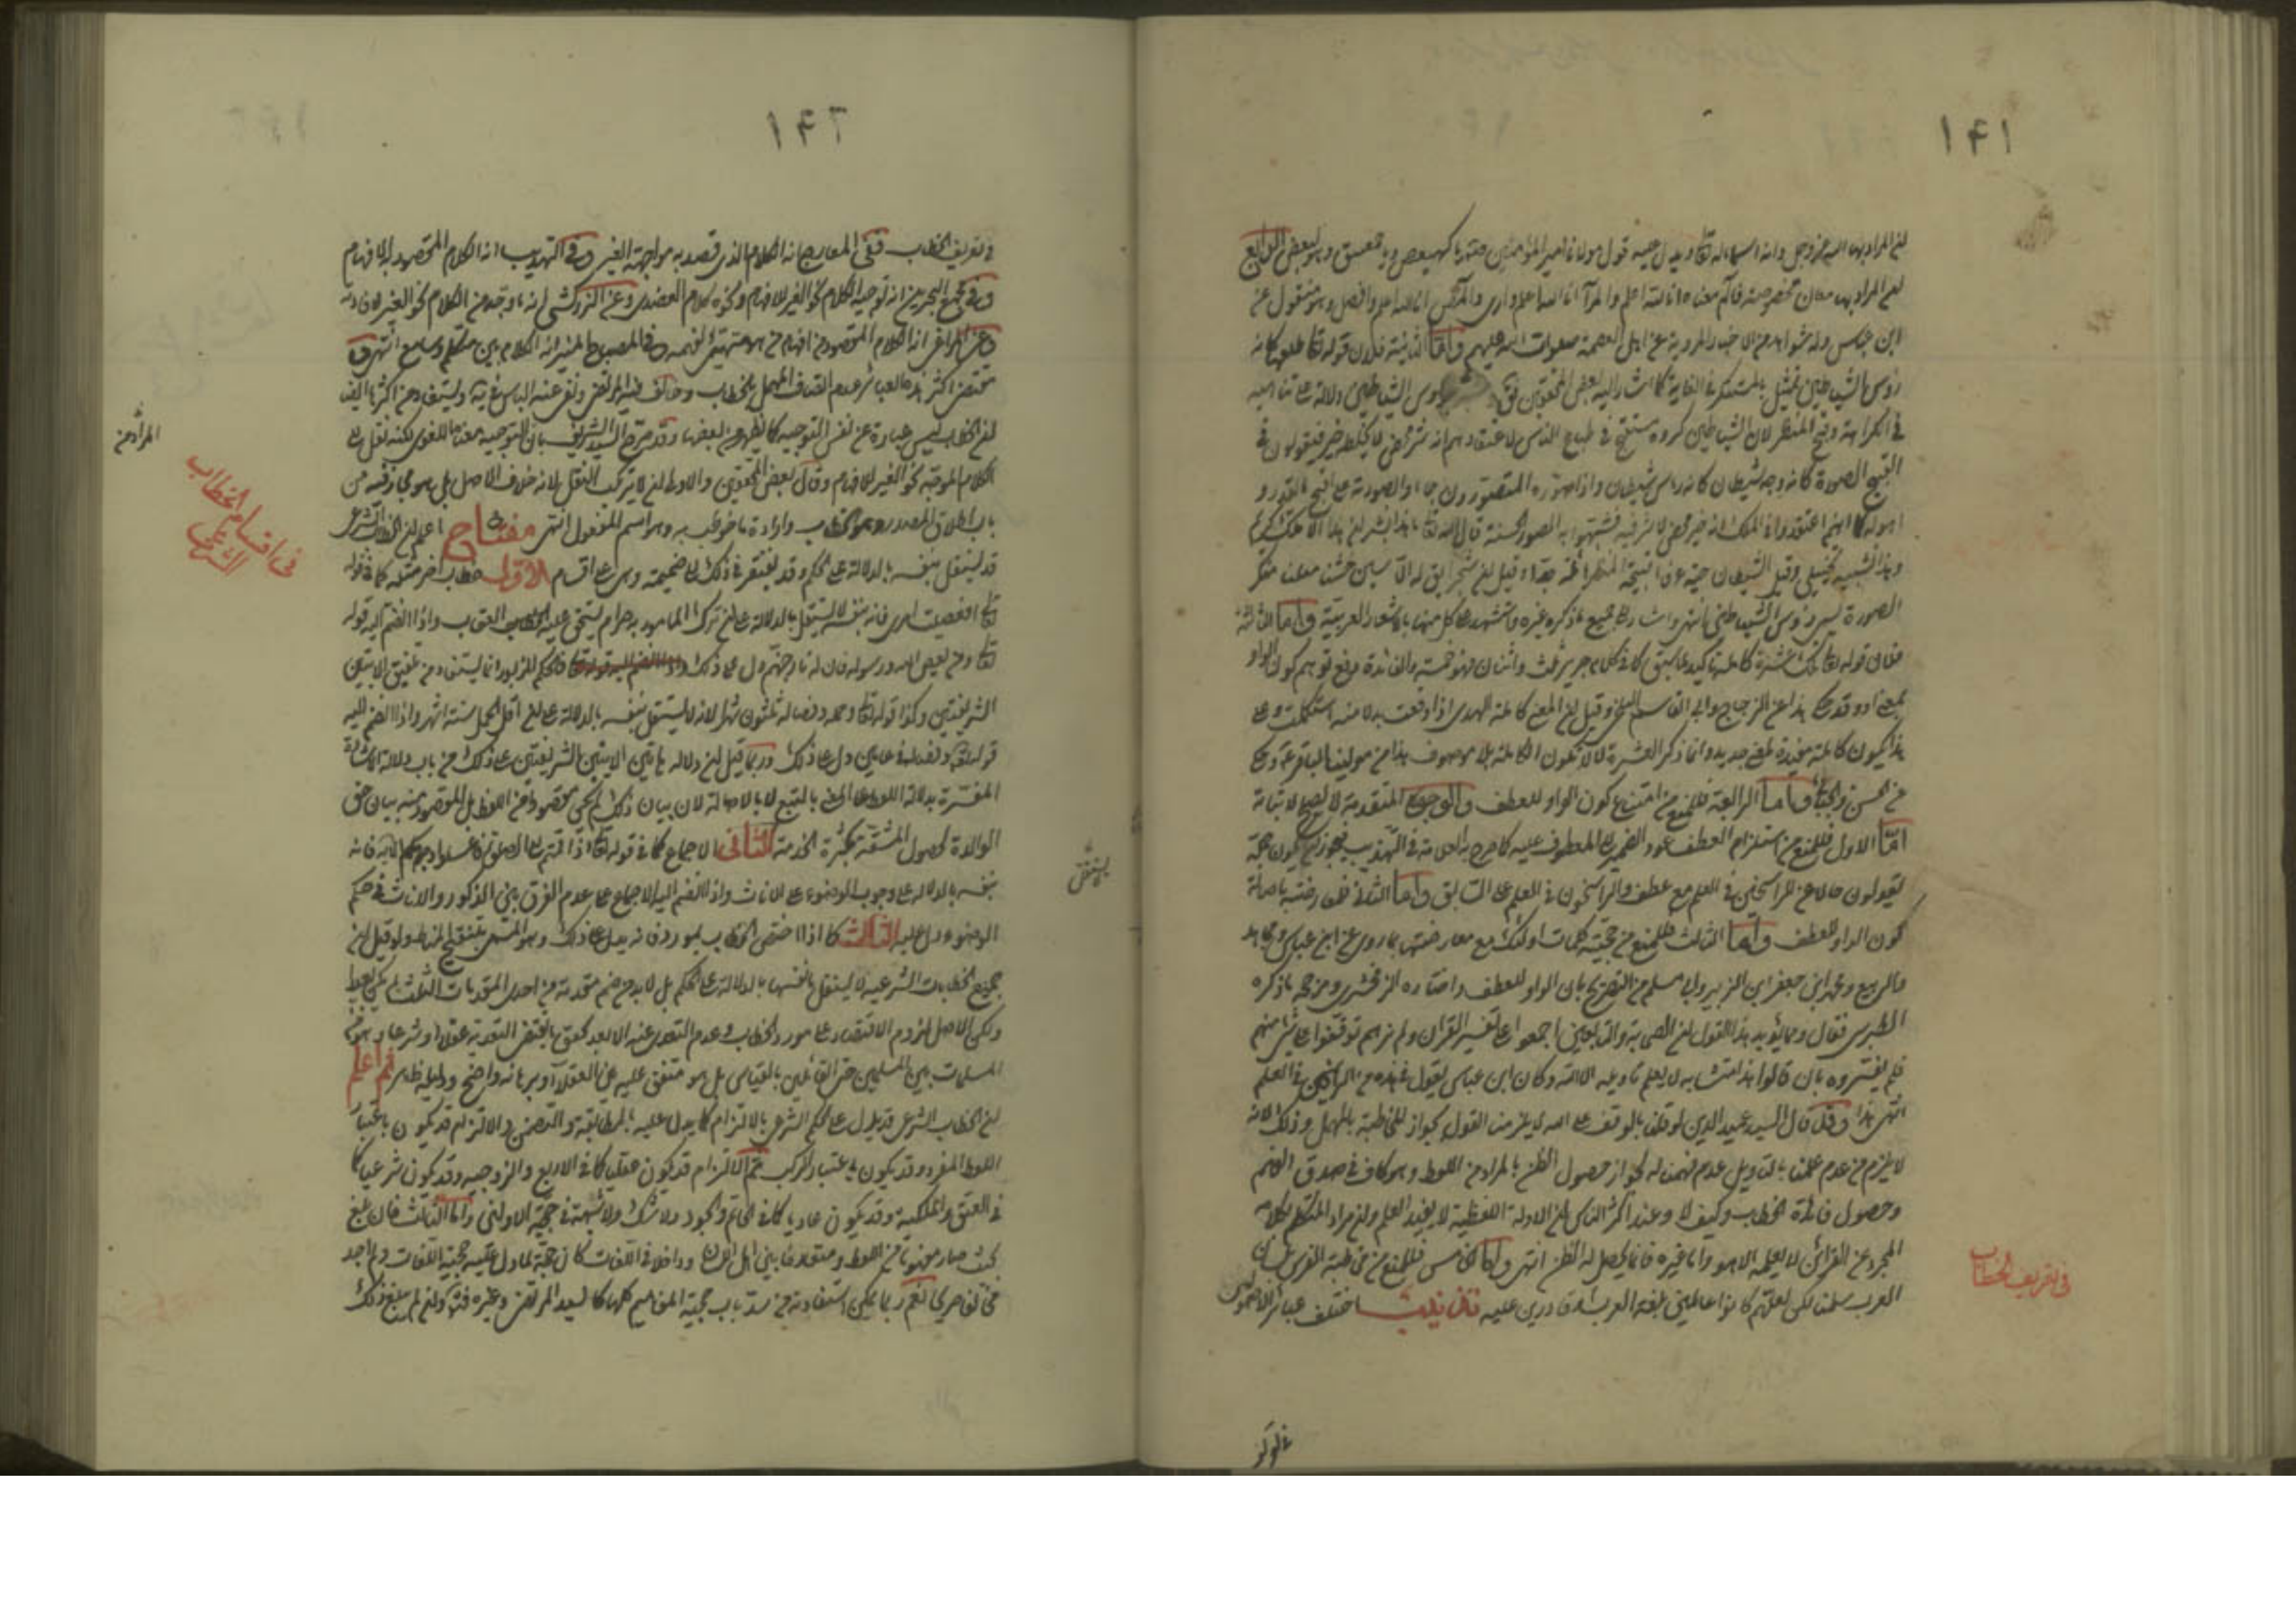 ١٤١
ان المراد بها الله عز وجل وانه اسماء له تعا ويدل عليه قول مولانا امير المؤمنين في دعائه يا كهيعص ويا حمعسق وهو لبعض الرابع
ان المراد بها معان مخصوصة فالم معناه انا الله اعلم والمرا انا الله اعلم وارى والمص انا الله اعلم وافصل وهو منقول عن
ابن عباس وله شواهد من الاخبار المروية عن اهل العصمة صلوات الله عليهم واما الثانية فلان قوله تعا طلعها كانه
رؤس الشياطين تمثيل بالمستنكر في الغاية كما اشار اليه بعض المحققين رؤس الشياطين دلالة على تناهيه
في الكراهة وقبح المنظر لان الشيطان مكروه مستقبح في طباع الناس لاعتقادهم انه شر محض لا يخلطه خير فيقولون في
القبيح الصورة كانه وجه شيطان كانه راس شيطان واذا صوره المصورون جاءوا بصورته على اقبح ما يقدر و
اهوله كما انهم اعتقدوا في الملك انه خير محض لا شر فيه فشبهوا به الصور الحسنة قال الله تعا ما هذا بشرا ان هذا الا ملك كريم
وهذا تشبيه تخييلي وقيل الشيطان حية عرفاء قبيحة المنظر هائلة جدا وقيل ان شجرا يق له الاستن خشنا منتنا منكر
الصورة يسمى رؤس الشياطين انتهى واشار الى جميع ما ذكره غيره واستشهد على كل منها باشعار العربية واما الثالثة
فلان قوله تعا تلك عشرة كاملة تاكيد لما سبق كما في كلام جرير ثلث واثنان فهو خمسة والفائدة دفع توهم كون الواو
بمعنى او وقد حكى هذا عن الزجاج وابي القاسم البلخي وقيل ان المعنى كاملة الهدى اذا وقعت بدلا منه استكملت وعلى
هذا يكون كاملة مفيدة لمعنى جديد وانما ذكر العشرة لئلا تكون الكاملة بلا موصوف هذا من مولينا الباقر ع وحكى
عن الحسن والجبائي واما الرابعة فللمنع من امتناع كون الواو للعطف والوجوه المتقدمة لا تصلح لاثباته
اما الاول فللمنع من استلزام العطف عود الضمير الى المعطوف عليه كما صرح به العلامة في التهذيب فيجوز ان يكون جملة
يقولون حالا عن الراسخين في العلم مع عطف والراسخون في العلم على السابق واما الثاني فلمعارضته باصالة
كون الواو للعطف واما الثالث فللمنع من حجية كلمات اولئك مع معارضتها بما روى عن ابن عباس ومجاهد
والربيع ومحمد ابن جعفر ابن الزبير وابي مسلم من التصريح بان الواو للعطف واختاره الزمخشري ومزجه ما ذكره
الطبرسي فقال ومما يؤيد هذا القول ان الصحابة والتابعين اجمعوا على تفسير القران ولم نرهم توقفوا على شئ منه
فلم يفسروه بان قالوا هذا متشابه لا يعلم تاويله الا الله وكان ابن عباس يقول في هذه الاية انا من الراسخين في العلم
انتهى هذا وقد قال السيد عميد الدين لو قلنا بالوقف على الله لا يلزم منه القول بجواز المخاطبة بالمهمل وذلك لانه
لا يلزم من عدم علمنا بالتاويل عدم فهمنا له لجواز حصول الظن بالمراد من اللفظ وهو كاف في صدق الفهم
وحصول فائدة الخطاب وكيف لا وعند اكثر الناس ان الادلة اللفظية لا يفيد العلم وان مراد المتكلم بكلامه
المجرد عن القرائن لا يعلمه الا هو واما غيره فانما يحصل له الظن انتهى واما الخامس فللمنع من مخاطبة الفرس بلسان
العرب سلمنا لكن لعلهم كانوا عالمين بلغة العرب او قادرين عليه فائدة اختلف عبائر الاصوليين
في تعريف الخطاب
١٤٢
في تعريف الخطاب ففي المعارج انه الكلام الذي قصد به مواجهة الغير وفي التهذيب انه الكلام المقصود به الافهام
وفي مجمع البحرين انه توجيه الكلام نحو الغير للافهام ونحوه كلام العضدي وعن الزركشي انه ما وجه من الكلام نحو الغير لافادته
وعن انه الكلام المقصود منه افهام من هو متهيئ لفهمه وفي المصباح المنير انه الكلام بين متكلم وسامع انتهى و
مقتضى اكثر هذه العبائر عدم اتصاف المهمل بالخطاب وخالف فيه المرتضى ونفى عنه الباس في يه ويستفاد من اكثرها ايضا
ان الخطاب ليس عبارة عن نفس التوجيه كما يظهر من بعضها وقد صرح السيد الشريف بان التوجيه معناه اللغوي لكنه نقل الى
الكلام الموجه نحو الغير للافهام وقال بعض المحققين والاولى ان لا يرتكب النقل لانه خلاف الاصل بل هو مجاز فيه من
باب اطلاق المصدر وهو الخطاب وارادة ما خوطب به وهو اسم المفعول انتهى مفتاح اعلم ان الخطاب الشرعي
قد يستقل بنفسه بالدلالة على الحكم وقد يفتقر في ذلك الى ضميمة وهي على اقسام الاول خطاب اخر مثله كما في قوله
تعا افعصيت امري فانه بنفسه لا يستقل بالدلالة على ان ترك المامور به حرام يستحق عليه العقاب واذا انضم اليه قوله
تعا ومن يعص الله ورسوله فان له نار جهنم دل على ذلك فالحكم المزبور انما يستفاد من تلفيق الايتين
الشريفتين وكذا قوله تعا وحمله وفصاله ثلثون شهرا لانه لا يستقل بنفسه بالدلالة على ان اقل الحمل ستة اشهر واذا انضم اليه
قوله تعا وفصاله في عامين دل على ذلك وربما قيل ان دلالة هاتين الايتين الشريفتين على ذلك من باب دلالة الاشارة
المفسرة بدلالة اللفظ على المعنى بالتبع لا بالاصالة لان بيان ذلك لم يكن مقصودا من اللفظ بل المقصود منه بيان حق
الوالدة لحصول المشقة بكثرة الخدمة الثاني الاجماع كما في قوله تعا اذا قمتم الى الصلوة فاغسلوا وجوهكم الاية فانه
بنفسه بالدلالة على وجوب الوضوء على الاناث واذا انضم اليه الاجماع على عدم الفرق بين الذكور والاناث في حكم
الوضوء دل عليه الثالث كما اذا اختص الخطاب بمورد فانه يدل على ذلك وهو المسمى بتنقيح المناط ولو قيل ان
جميع الخطابات الشرعية لا يستقل بانفسها بالدلالة على الحكم بل لا بد من ضم مقدمة من احدى المقدمات الثلث لم يكن بعيدا
ولكن الاصل لزوم الاقتصار على مورد الخطاب وعدم التعدي عنه الا بعد تحقق ما يقتضي التعدية عقلا او شرعا وهو من
المسلمات بين المسلمين حتى القائلين بالقياس بل هو متفق عليه بين العقلاء وبرهانه واضح ودليله ظاهر ثم اعلم
ان الخطاب الشرعي قد يدل على الحكم الشرعي بالالتزام كما يدل عليه بالمطابقة والتضمن والالتزام قد يكون باعتبار
اللفظ المفرد وقد يكون باعتبار المركب ثم الالتزام قد يكون عقليا كما في الاربع والزوجية وقد يكون شرعيا كما
في العتق والملكية وقد يكون عاديا كما في الحاتم والجود ولا شك ولا شبهة في حجية الاولين واما الثالث فان بلغ
بحيث صار مفهوما من اللفظ ومتعارفا بين اهل اللسان وداخلا في اللغات كان حجة لما دل على حجية اللغات ولم اجد
مخالفا صريحا نعم ربما يمكن استفادته من سد باب حجية المفاهيم كلها كالسيد المرتضى وغيره وان لم يبلغ ذلك
المراد من
في اقسام الخطاب الشرعي
لا يستقل